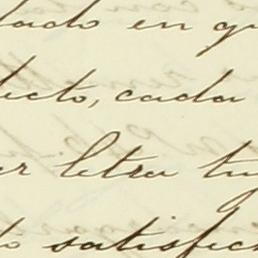 tado en qu
ecto, cada
er letra tu
o satisfec